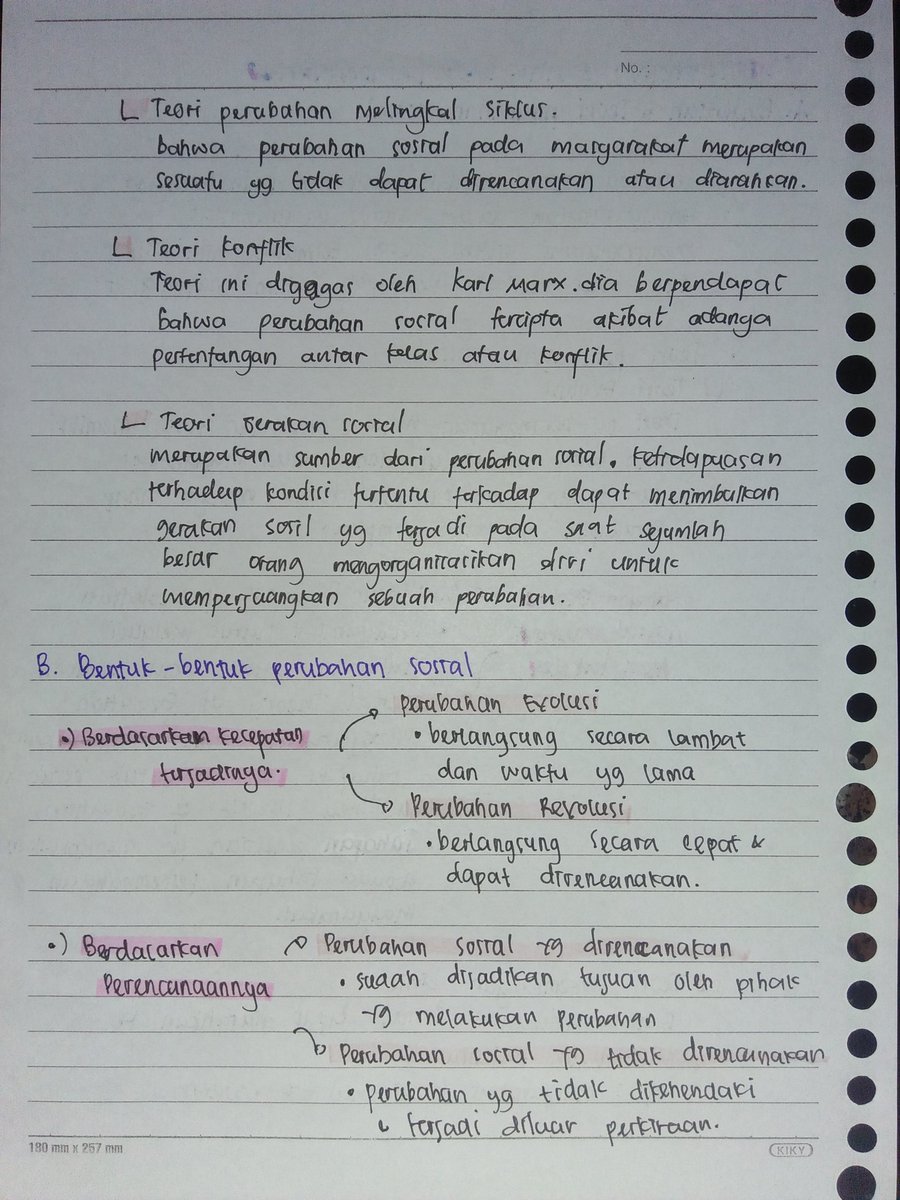 No. :
Teori perubahan Melingkal siklus.
bahwa perubahan sosial pada masyarakat merupakan
sesuatu yg tidak dapat direncanakan atau diarahkan.
Teori konflik
Teori ini digagas oleh Karl Marx. dia berpendapat
bahwa perubahan social tercipta akibat adanya
pertentangan antar kelas atau konflik.
Teori Gerakan sosial
merupakan sumber dari perubahan sosial. Ketidapuasan
terhadap kondisi tertentu terhadap dapat menimbulkan
gerakan sosil yg terjadi pada saat sejumlah
besar orang mengorganisasikan diri untuk
memperjuangkan sebuah perubahan.
B. Bentuk-bentuk perubahan sosial
•) Berdasarkan kecepatan
terjadinya.
Perubahan Evolusi
• berlangsung secara lambat
dan waktu yg lama
Perubahan Revolusi
• berlangsung secara cepat &
dapat direncanakan.
•) Berdasarkan
Perencanaannya
Perubahan sosial yg direncanakan
• sudah dijadikan tujuan oleh pihak
yg melakukan perubahan
Perubahan social yg tidak direncanakan
• perubahan yg tidak dikehendaki
terjadi diluar perkiraan.
180 mm x 257 mm
KIKY